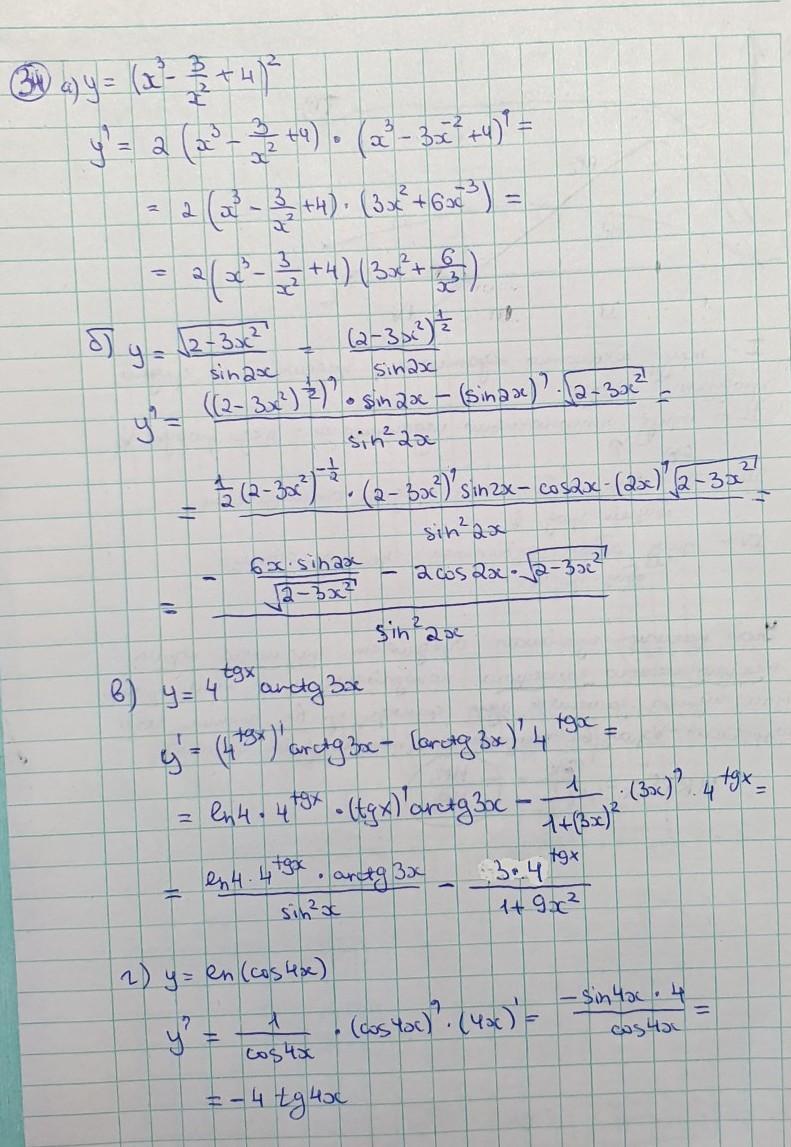 34 а) y = (x³ - 3/x² + 4)²
y' = 2 (x³ - 3/x² + 4) · (x³ - 3x⁻² + 4)' =
= 2 (x³ - 3/x² + 4) · (3x² + 6x⁻³) =
= 2(x³ - 3/x² + 4) (3x² + 6/x³)
б) y = √(2-3x²) / sin2x = (2-3x²)^(1/2) / sin2x
y' = (((2-3x²)^(1/2))' · sin2x - (sin2x)' · √(2-3x²)) / sin²2x =
= (1/2 (2-3x²)^(-1/2) · (2-3x²)' sin2x - cos2x · (2x)' √(2-3x²)) / sin²2x =
= (- 6x·sin2x / √(2-3x²) - 2cos2x · √(2-3x²)) / sin²2x
в) y = 4^(tgx) arctg3x
y' = (4^(tgx))' arctg3x - (arctg3x)' 4^(tgx) =
= ln4 · 4^(tgx) · (tgx)' arctg3x - 1/(1+(3x)²) · (3x)' · 4^(tgx) =
= ln4 · 4^(tgx) · arctg3x / sin²x - 3 · 4^(tgx) / (1+9x²)
г) y = ln(cos4x)
y' = 1/cos4x · (cos4x)' · (4x)' = -sin4x · 4 / cos4x =
= -4 tg4x